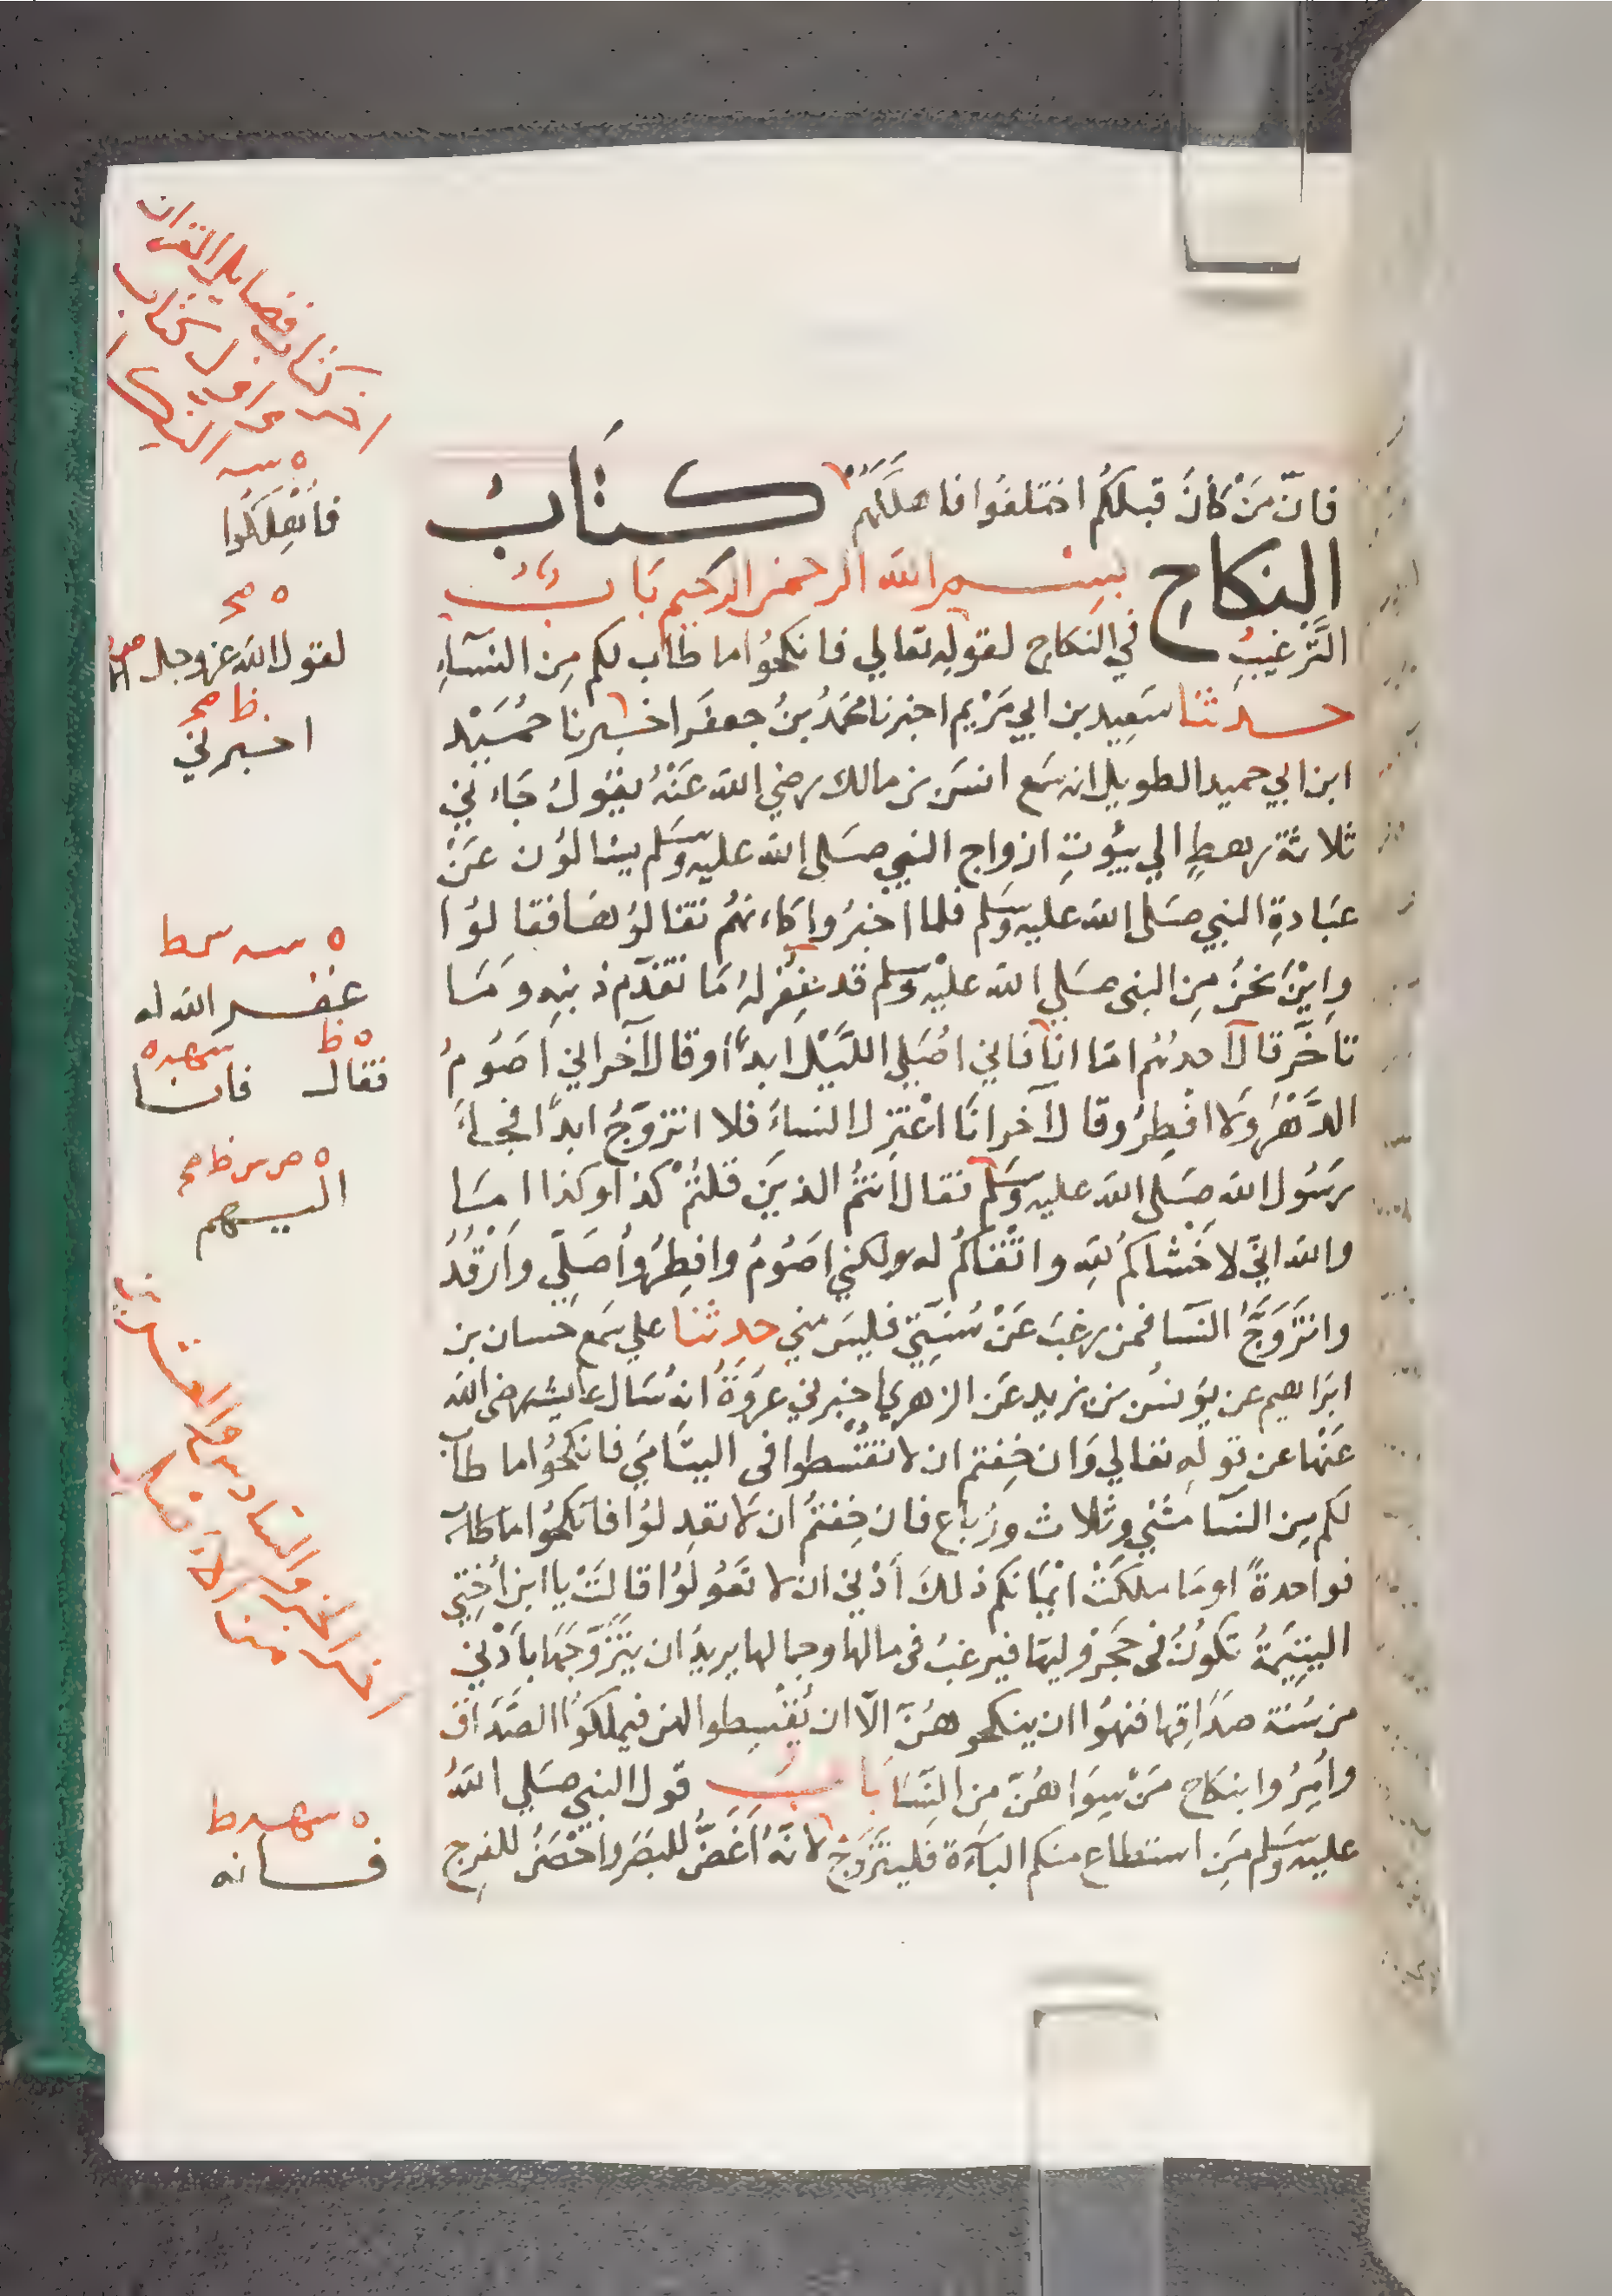 فانّ مَنْ كانَ قبلكُم اختلفوا فاهلكهم كتابُ
النكاحِ بسم الله الرحمن الرحيم بَابُ
التَّرغيبُ في النكاح لقولِه تعالي فانكحُوا ما طاب لكم مِن النسآءِ
حدثنا سَعِيد بن ابي مَرْيم اخبرنا محمّدُ بنُ جعفَر اخبرنا حُمَيْد
ابن ابي حميد الطويل انه سَمع انسَ بن مالك رضي الله عَنْهُ يقولُ جَاء ني
ثلاثة رهطٍ الي بيُوتِ ازواج النبي صَلي الله عليه وسَلم يسالوُن عَنْ
عبَادةِ النبي صَلي الله عليه وسَلم فلما اخْبرُوا كاءنهُم تقالوُهَا فقالوُا
واينْ نحنُ مِن النبي صَلي الله عليْه وسلم قد غفِرَ لهُ مَا تقدّم ذنبِه ومَا
تاخّر قالَ احدُهُم امّا انا فاني اصَلي اللّيْل ابدًا وقالَ آخر اني اصَوُمُ
الدّهْرَ ولا افطِرُ وقال آخر انَا اعْتزِل النساءَ فلا اتزوّجُ ابدًا فجاءَ
رسَوُل الله صَلي الله عليه وسَلم فقال انتمُ الذينَ قلتُمْ كذا وكذا امَا
والله انيّ لاخْشاكم لله واتْقاكمُ له ولكني اصَوُمُ وافطِرُ وأصَلّي وأرْقُدُ
واتزَوَّجُ النّسَا فمن رغبَ عَنْ سُنتِيّ فليسَ مني حدثنا علي سَمع حَسان بن
ابرَاهيم عن يوُنسُ بن يزيد عَن الزهري اخبرني عروَةُ انهُ سَال عايشه رضى الله
عَنْها عن قولهِ تعالي وَان خِفتم ان لا تقْسطوا في اليتامي فانكحُوا ما طابَ
لكم مِن النسَا مَثني وثلاث ورُبَاع فان خِفتمُ ان لا تعدِلوُا فانكحُوا ما طاب
فواحدةً او مَا ملكتْ ايمَانكم ذلكَ ادْني ان لا تعَوُلوُا قالَتْ يا ابن أختي
اليتِيمَةُ تكوُنُ في حَجَرْ وليهَا فيرغبُ في مالها وجمالها يريدُ ان يتزَوّجَهَا بادْني
من سُنة صدَاقِها فنهُوا ان ينكحو هُنّ الّا ان يُقْسِطوا لهن فيملكوا الصّدَاق
وأمِرُوا بنكاح مَنْ سِوَاهُنّ مِن النّسَا بَابُ قول النبي صَلي اللهُ
عليه وسَلم مَن استطاع منكم البآءَة فليتزَوّجْ لانهُ اغَضُّ للبَصَر واحْصَنُ للفرج
اخر كتاب فضايل القران
من اول كتاب
النكاح
ه سه
فاُهلِكُوا
ه صح
لقول الله عز وجل
ظ صح
اخبرني
ه سه ط
غفر الله له
ه ظ
فقال فانا
ه ص س ظ صح
اليهم
اخر الجزو السادس والعشرين
من الاصل
ه سهـ ط
فانه